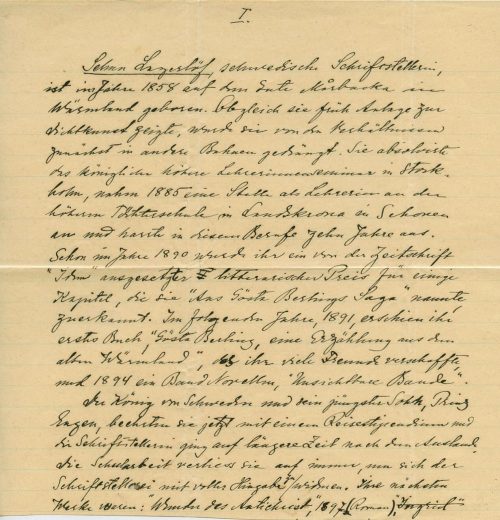 I.
Selma Lagerlöf, schwedische Schriftstellerin,
ist im Jahre 1858 auf dem Gute Mårbacka in
Wärmland geboren. Obgleich sie früh Anlage zur
Dichtkunst zeigte, wurde sie von den Verhältnissen
zunächst in andere Bahnen gedrängt. Sie absolvirte
das königliche höhere Lehrerinnenseminar in Stock-
holm, nahm 1885 eine Stelle als Lehrerin an der
höheren Töchterschule in Landskrona in Schonen
an und harrte in diesem Berufe zehn Jahre aus.
Schon im Jahre 1890 wurde ihr ein von der Zeitschrift
"Idun" ausgesetzter litterarischer Preis für einige
Kapitel, die sie "Aus Gösta Berlings Saga" nannte,
zuerkannt. Im folgenden Jahre, 1891, erschien ihr
erstes Buch, "Gösta Berling, eine Erzählung aus dem
alten Wärmland", das ihr viele Freunde verschaffte,
und 1894 ein Band Novellen, "Unsichtbare Bande".
Der König von Schweden und sein jüngster Sohn, Prinz
Eugen, beehrten sie jetzt mit einem Reisestipendium und
die Schriftstellerin ging auf längere Zeit nach dem Ausland.
Die Schularbeit verliess sie auf immer, um sich der
Schriftstellerei mit voller Hingabe widmen. Ihre nächsten
Werke waren: "Wunder des Antichrist", 1897, (Roman) Ingrid"